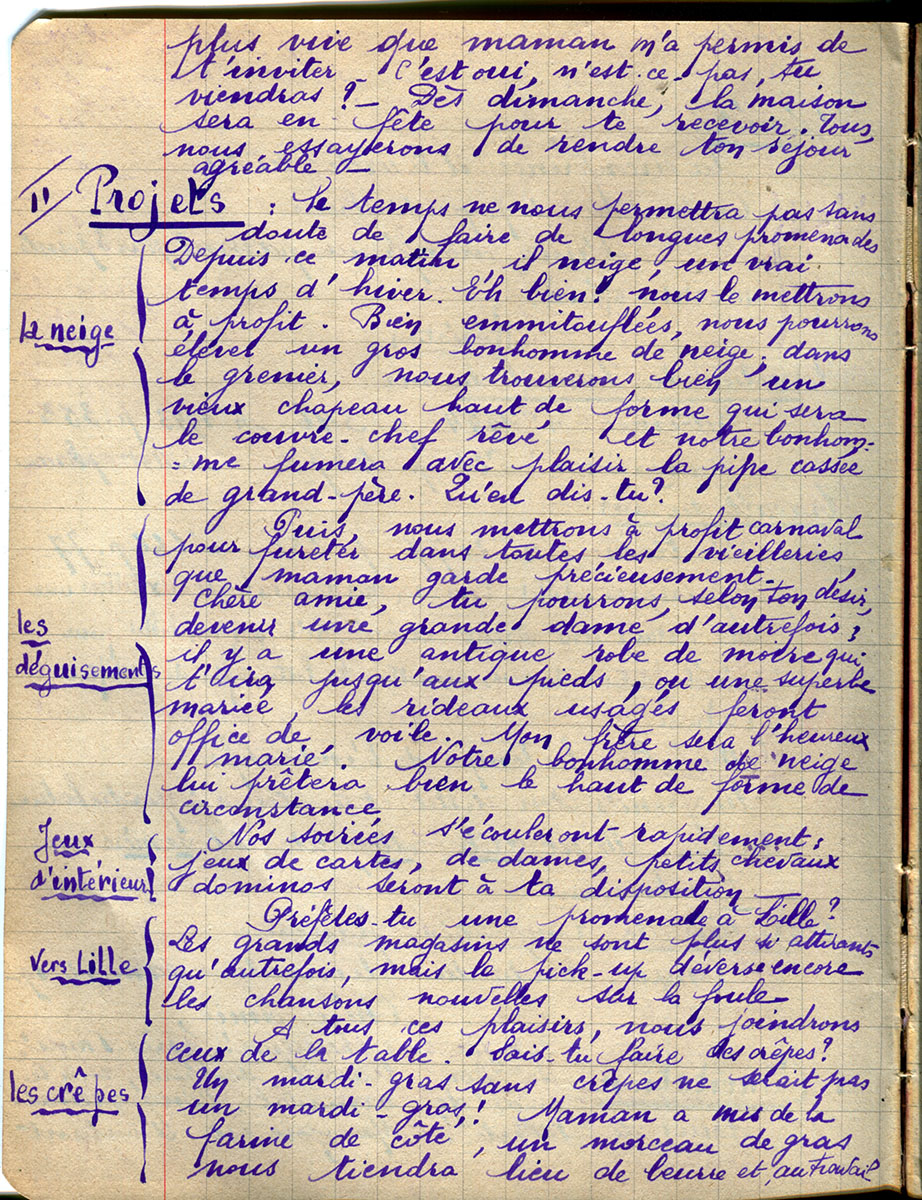 plus vive que maman m'a permis de
t'inviter _ C'est oui, n'est-ce pas, tu
viendras ? _ Dès dimanche, la maison
sera en fête pour te recevoir. Tous,
nous essayerons de rendre ton séjour
agréable _
II/ Projets : Le temps ne nous permettra pas sans
doute de faire de longues promenades
Depuis ce matin il neige, un vrai
temps d'hiver. Eh bien! nous le mettrons
à profit. Bien emmitouflées, nous pourrons
La neige
élever un gros bonhomme de neige; dans
le grenier, nous trouverons bien un
vieux chapeau haut de forme qui sera
le couvre-chef rêvé et notre bonhom-
=me fumera avec plaisir la pipe cassée
de grand-père. Qu'en dis-tu?
Puis, nous mettrons à profit carnaval
pour fureter dans toutes les vieilleries
que maman garde précieusement._
Chère amie, tu pourrons, selon ton désir,
les
déguisements
devenir une grande dame d'autrefois;
il y a une antique robe de moire qui
t'ira jusqu'aux pieds, ou une superbe
mariée, les rideaux usagés feront
office de voile. Mon frère sera l'heureux
marié. Notre bonhomme de neige
lui prêtera bien le haut de forme de
circonstance
Jeux
d'intérieur
Nos soirées s'écouleront rapidement:
jeux de cartes, de dames, petits chevaux
dominos seront à ta disposition _
Préfères-tu une promenade à Lille?
vers Lille
Les grands magasins ne sont plus si attirants
qu'autrefois, mais le pick-up déverse encore
les chansons nouvelles sur la foule
A tous ces plaisirs, nous joindrons
ceux de la table. Sais-tu faire des crêpes?
les crêpes
Un mardi-gras sans crêpes ne serait pas
un mardi-gras! Maman a mis de la
farine de côté, un morceau de gras
nous tiendra lieu de beurre et, au travail